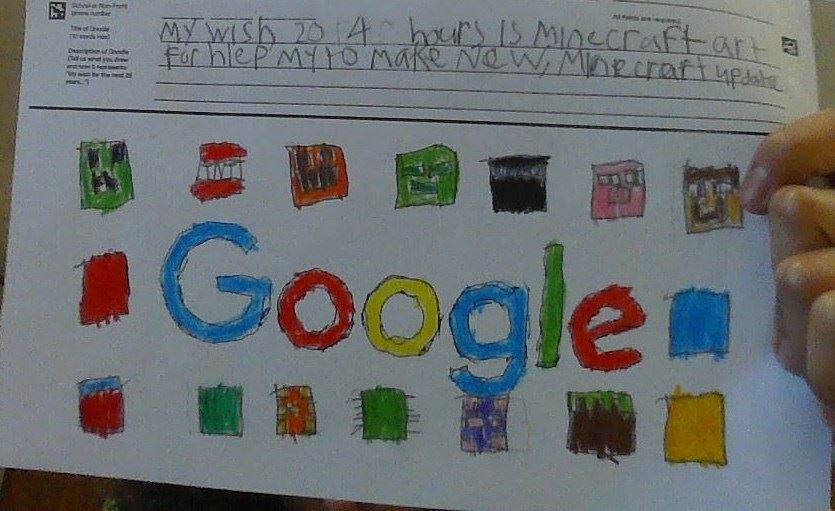 School or Non-Profit
phone number
All fields are required.
Title of Doodle
(10 words max)
My wish 2014 hours is Minecraft art
Description of Doodle
(Tell us what you drew
and how it represents
"My wish for the next 25
years...")
for hlep my to make New, Minecraft update
TNT
Google